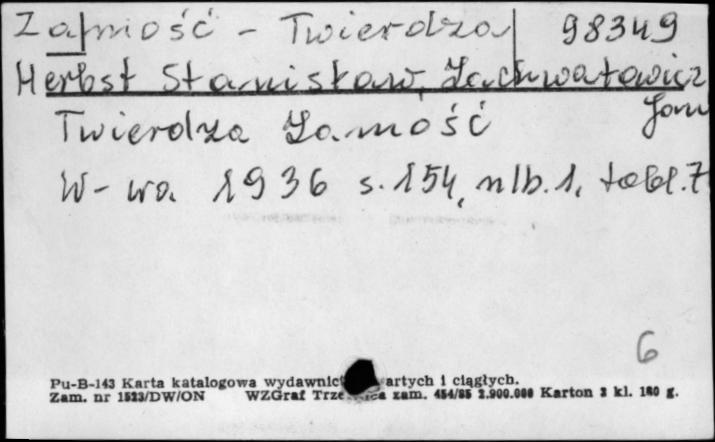 Zamość - Twierdza 98349
Herbst Stanisław, Zachwatowicz
Jan
Twierdza Zamość
W-wa 1936 s. 154, nlb. 1, tabl. 7
6
Pu-B-143 Karta katalogowa wydawnic artych i ciągłych.
Zam. nr 1523/DW/ON WZGraf zam. 454/85 2.900.000 Karton 3 kl. 180 g.